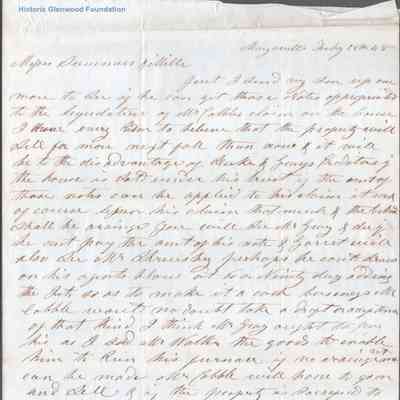 Historic Glenwood Foundation
Maysville July 18th 48
Messrs Summers & Mille
Gent I send my son up once
more to see if he can get those notes appropriated
to the liquidation of Mr Cobbles claim on the house
I have every reason to believe that the property will
Sell for more next fall than now & it will
be to the disadvantage of & Grays Creditors if
the house is sold under his if the amt of
those notes can be applied to his claim it will
of course lessen his claim that much & the
shall be arainge you will see Mr Gray & see if
he cant pay the amt of his note & Garret will
also see Mr Shrewsbry perhaps he can a draw
on his agents at a Ninety days adding
the so as to make it a cash business Mr
Cobble would no doubt take a draft or acceptance
of that kind I think Mr Gray ought to pay
his as I sold Mr the goods to enable
him to Run this furnace if no arraingement
can be made Mr Cobble will have to go on
and Sell & if the property is to